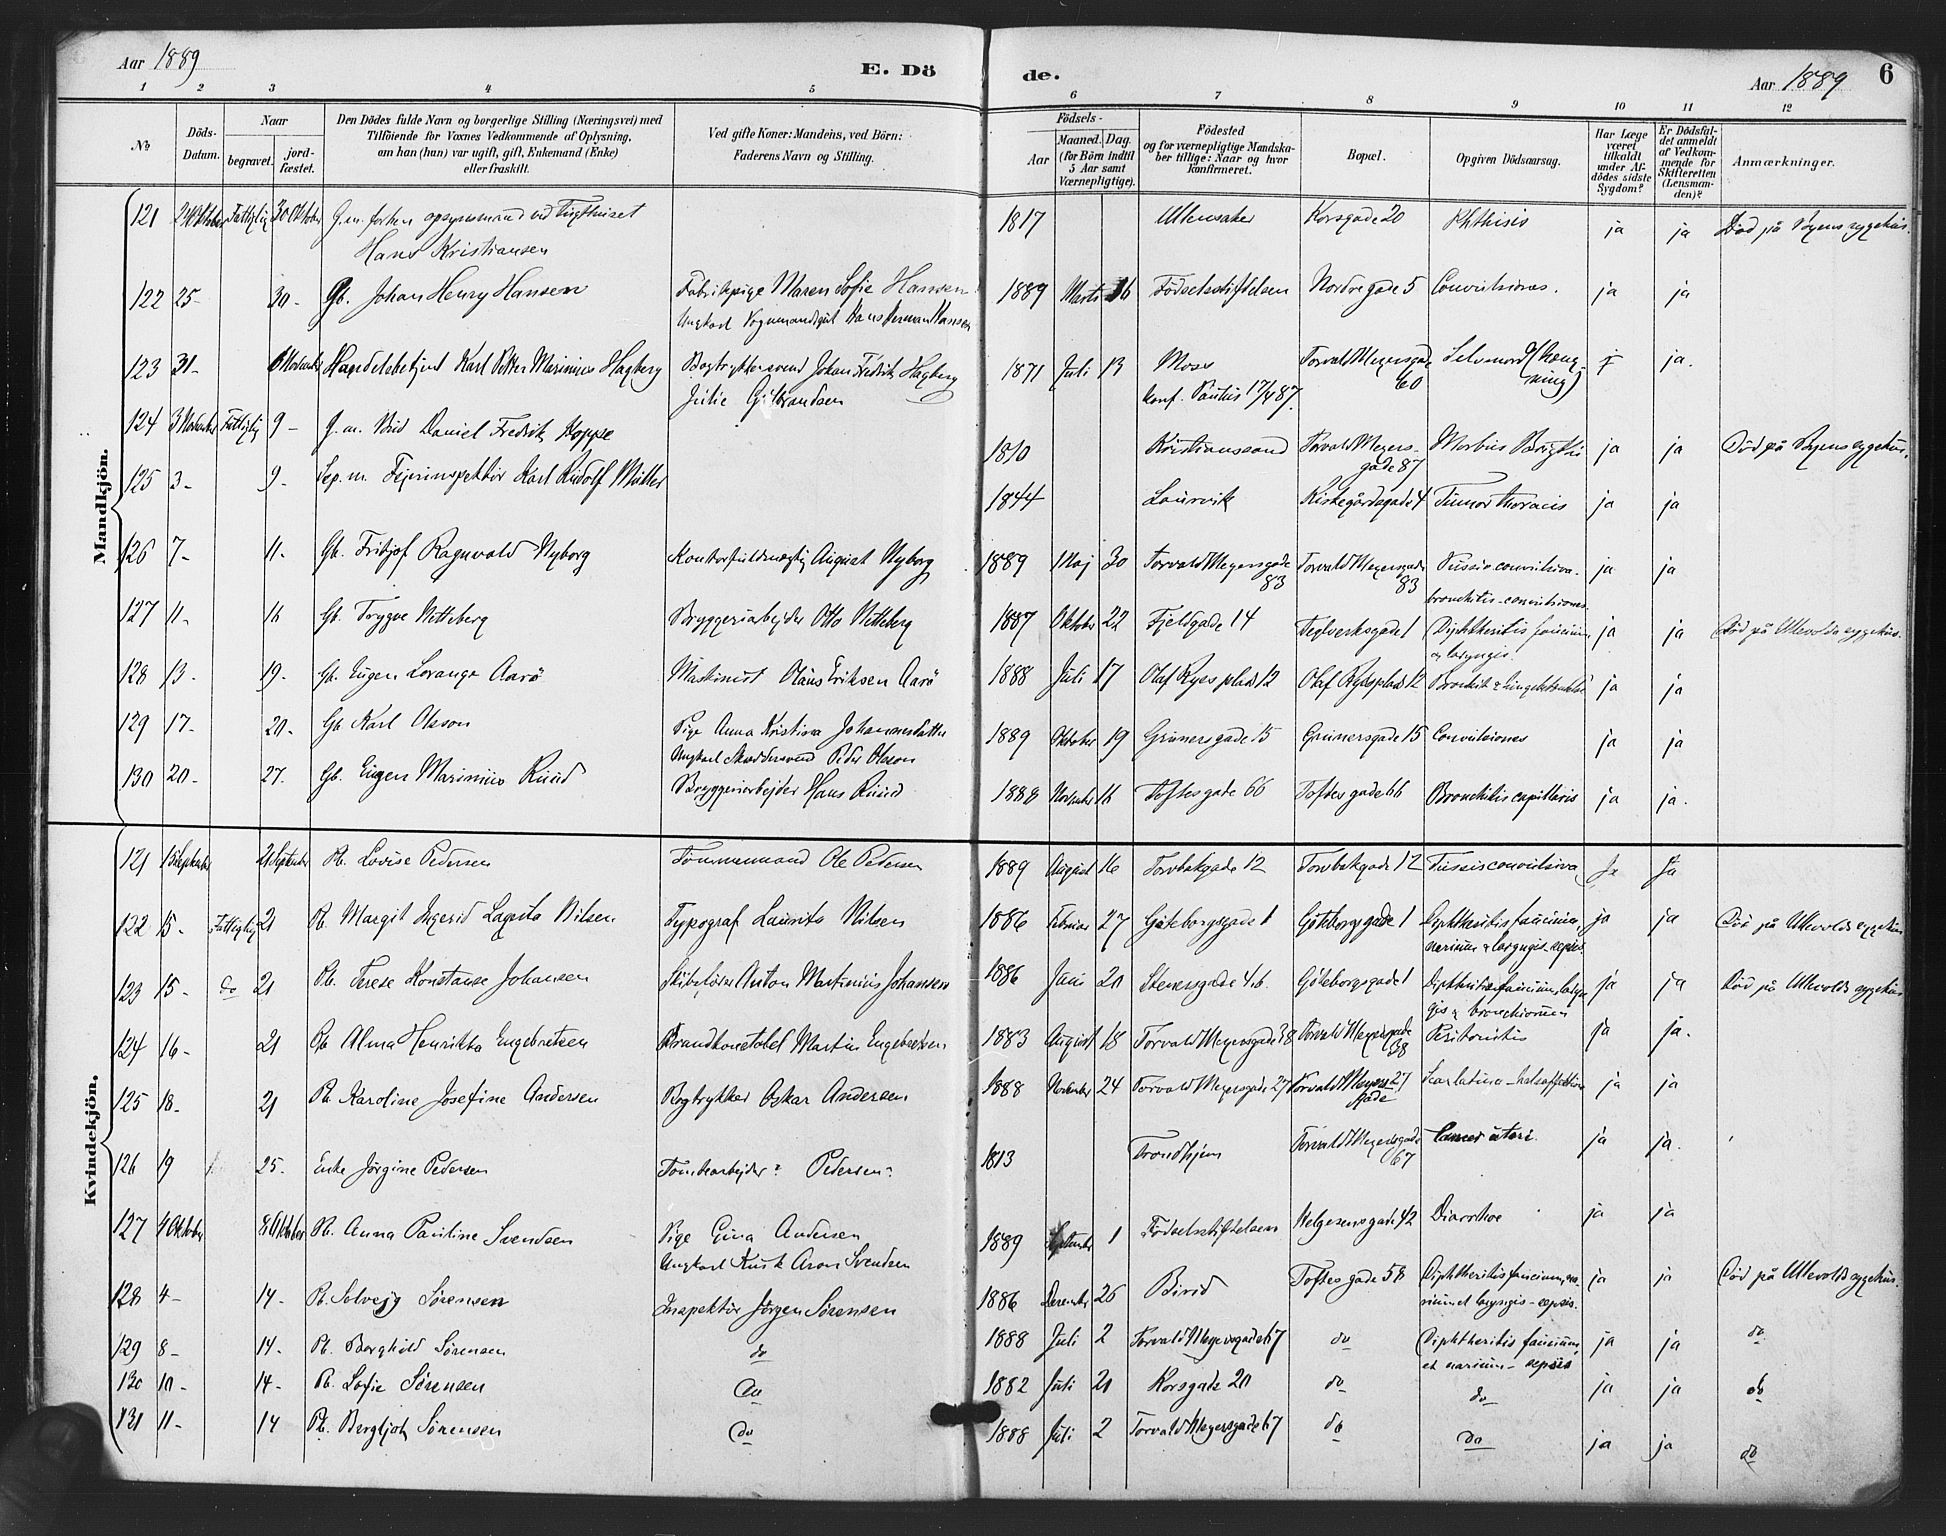 Aar 1889
E. Dö
de.
Aar 1889
6
1 2 3 4 5 6 7 8 9 10 11 12
No
Döds-
Datum.
Naar
begravet.
jord-
fæstet.
Den Dödes fulde Navn og borgerlige Stilling (Næringsvei) med
Tilföiende for Voxnes Vedkommende af Oplysning,
om han (hun) var ugift, gift, Enkemand (Enke)
eller fraskilt.
Ved gifte Koner: Mandens, ved Börn:
Faderens Navn og Stilling.
Födsels-
Aar
Maaned. Dag.
(for Börn indtil
5 Aar samt
Værnepligtige).
Födested
og for værnepligtige Mandska-
ber tillige: Naar og hvor
konfirmeret.
Bopæl.
Opgiven Dödsaarsag.
Har Læge
været
tilkaldt
under Af-
dödes sidste
Sygdom?
Er Dödsfal-
det anmeldt
af Vedkom-
mende for
Skifteretten
(Lensman-
den)?
Anmærkninger.
Mandkjön.
121 Oktober Fattiglig 30 Oktober G.m. forhen opsynsmand ved Tugthuset 1817 Ullensaker Korsgade 20 Phthisis ja ja Död på sygehus.
Hans Kristiansen
122 25- 30- Gb. Johan Henry Hansen Fabrikpige Maren Sofie Hansen 1889 Marts 16 Födselsstiftelsen Nordregade 5 Convulsiones. ja ja
Ungkarl Hans Herman Hansen
123 31- 6 November Handelsbetjent Karl Petter Marinius Hagberg Bogtrykkersvend Johan Fredrik Hagberg 1871 Juli 13 Moss Torvald Meyersgade 60 Selvmord (hæng-
ning) ja.
Julie Gulbrandsen konf. Paulus 17/4 87.
124 3 November Fattiglig 9- G.m. Bud Daniel Fredrik Koppe 1810 Kristianssand Torvald Meyers-
gade 87 Morbus Brightii ja ja Död på sygehus.
125 3- 9- Sep. m. Karl Rudolf Müller 1844 Laurvik Kirkegårdsgade 4 Tumor thoracis ja ja
126 7- 11- Gb. Fritjof Ragnvald Nyborg Kontorfuldmægtig August Nyborg 1889 Maj 30 Torvald Meyersgade 83 Torvald Meyersgade 83 Tussis convulsiva-
bronchitis-convulsiones ja ja
127 11- 16 Gb. Trygve Nitteberg Bryggeriarbejder Otto Nitteberg 1887 Oktober 22 Fjeldgade 14 Teglverksgade 1 Diphtheritis faucium
& laryngis. ja ja Död på Ullevolds sygehus.
128 13- 19- Gb. Eugen Lorange Aarö Maskinist Olaus Eriksen Aarö 1888 Juli 17 Olaf Ryes plads 12 Olaf Ryes plads 12 ja ja
129 17- 20- Gb. Karl Olsson Pige Anna Kristina Johannesdatter 1889 Oktober 19 Grünersgade 15 Grünersgade 15 Convulsiones ja ja
Ungkarl Skræddersvend Peder Olsson
130 20- 27. Gb. Eugen Marinius Ruud Bryggeriarbejder Hans Ruud 1888 November 16 Toftesgade 66 Toftesgade 66 Bronchitis capillaris ja ja.
Kvindekjön.
121 13 September 21 September Pb. Lovise Pedersen Tömmermand Ole Pedersen 1889 August 16 Torvbakgade 12 Torvbakgade 12 Tussis convulsiva Ja Ja
122 15- Fattiglig 21 Pb. Margit Ingerid Nilsen Typograf Laurits Nilsen 1886 Februar 27 Göteborgsgade 1 Göteborgsgade 1 Diphtheritis faucium,
narium & laryngis-sepsis ja ja Död på Ullevolds sygehus
123 15- do 21 Pb. Terese Konstanse Johansen Skibsförer Anton Martinius Johansen 1886 Juni 20 Stenersgade 4.6. Göteborgsgade 1 Diphtheritis faucium, laryn-
gis & bronchiorum ja ja Död på Ullevolds sygehus
124 16- 21 Pb Alma Henrikka Engebretsen Brandkonstabel Martin Engebretsen 1883 August 18 Torvald Meyersgade 38 Torvald Meyersgade 38 Peritonitis ja ja.
125 18- 21 Pb. Karoline Josefine Andersen Bogtrykker Oskar Andersen 1888 November 24 Torvald Meyersgade 27 Torvald Meyers-27
gade Scarlatina-halsaffektion ja ja
126 19 25- Enke Jörgine Pedersen Pedersen 1813 Trondhjem Torvald Meyersgade 67 Cancer uteri. ja ja.
127 4 Oktober 8 Oktober Pb. Anna Pauline Svendsen Pige Gina Andersen 1889 September 1 Födselsstiftelsen Helgesensgade 42 Diarrhoe ja ja
Ungkarl Kusk Aron Svendsen
128 4- 14- Pb. Solveig Sörensen Inspektör Jörgen Sörensen 1886 December 26 Birid Toftesgade 58 Diphtheritis faucium, na-
rium et laryngis-sepsis. ja ja Död på Ullevolds sygehus.
129 8- 14- Pb. Borghild Sörensen do 1888 Juli 2 Torvald Meyersgade 67 do Diphtheritis faucium
et narium-sepsis ja ja do
130 10- 14- Pb. Sofie Sörensen do 1882 Juli 21 Korsgade 20 do do ja ja do
131 11- 14 Pb. Bergljot Sörensen do 1888 Juli 2 Torvald Meyersgade 67 do do ja ja do